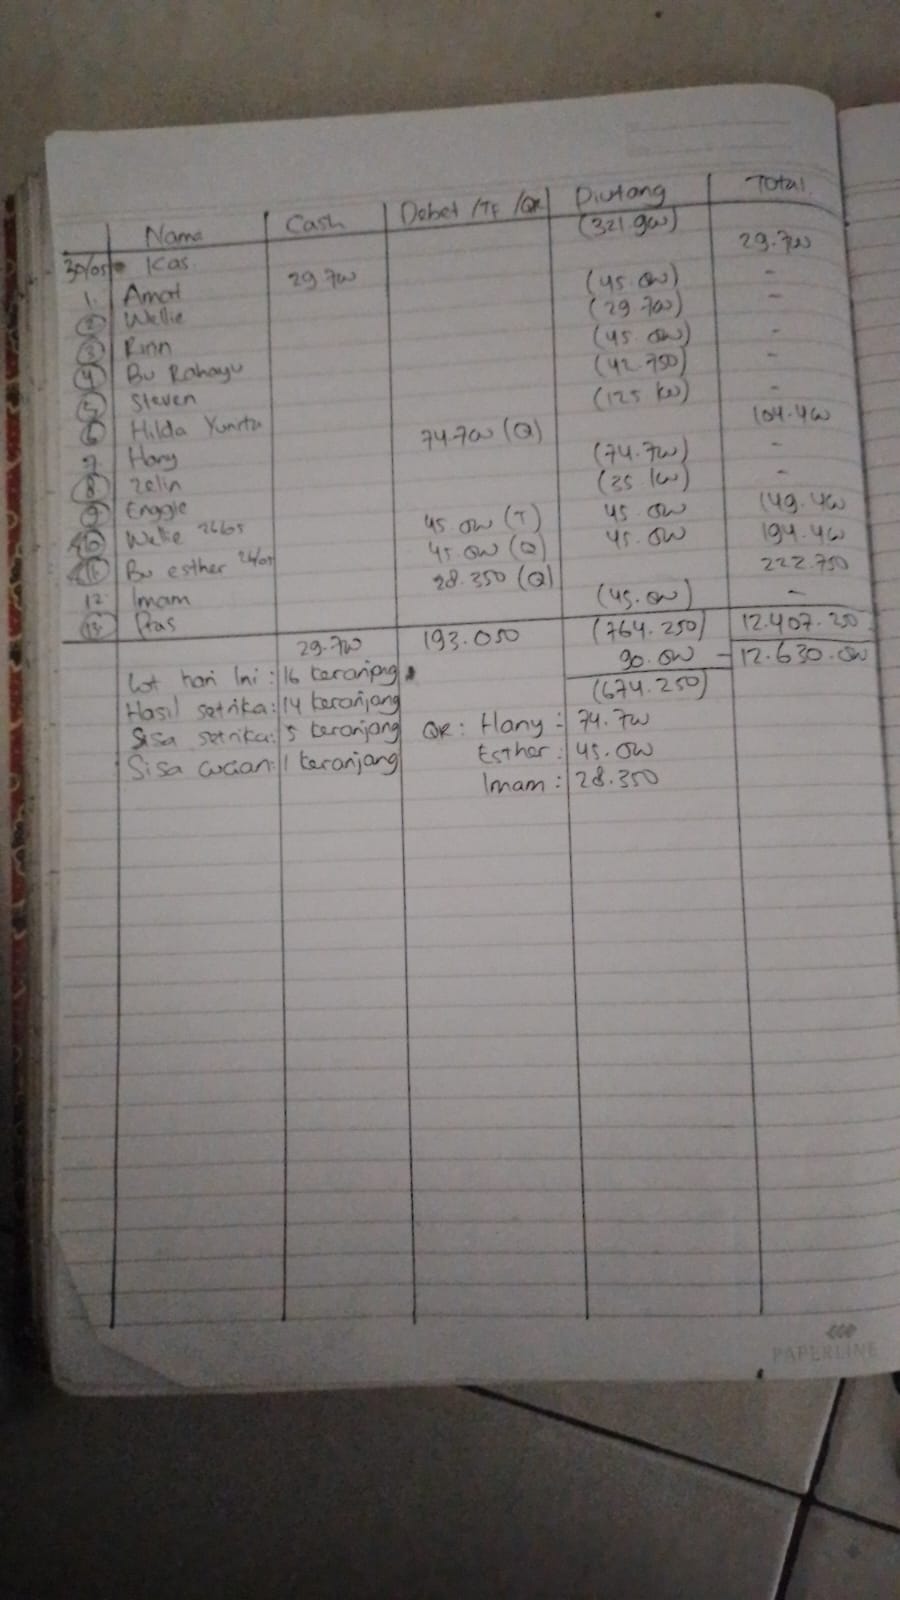 Nama Cash Debet /TF /QR Piutang Total
30/05 • Kas (321.900)
1. Amat 29.700 29.700
2 Wellie (45.000) -
3 Rinn (29.700) -
4 Bu Rahayu (45.000) -
5 Steven (42.750) -
6 Hilda Yunita (125.100) -
7. Hany 74.700 (Q) 104.400
8 Zelin (74.700) -
9 Enggie (35.100) -
10 Wellie 26/05 45.000 (T) 45.000 149.400
11 Bu esther 24/05 45.000 (Q) 45.000 194.400
12 Imam 28.350 (Q) 222.750
13 Pras (45.000) -
29.700 193.050 (764.250) 12.407.250
90.000 - 12.630.000
(674.250)
Lot hari Ini : 16 keranjang
Hasil setrika : 14 keranjang
Sisa setrika : 5 keranjang
Sisa cucian : 1 keranjang
QR : Hany : 74.700
Esther : 45.000
Imam : 28.350
PAPERLINE